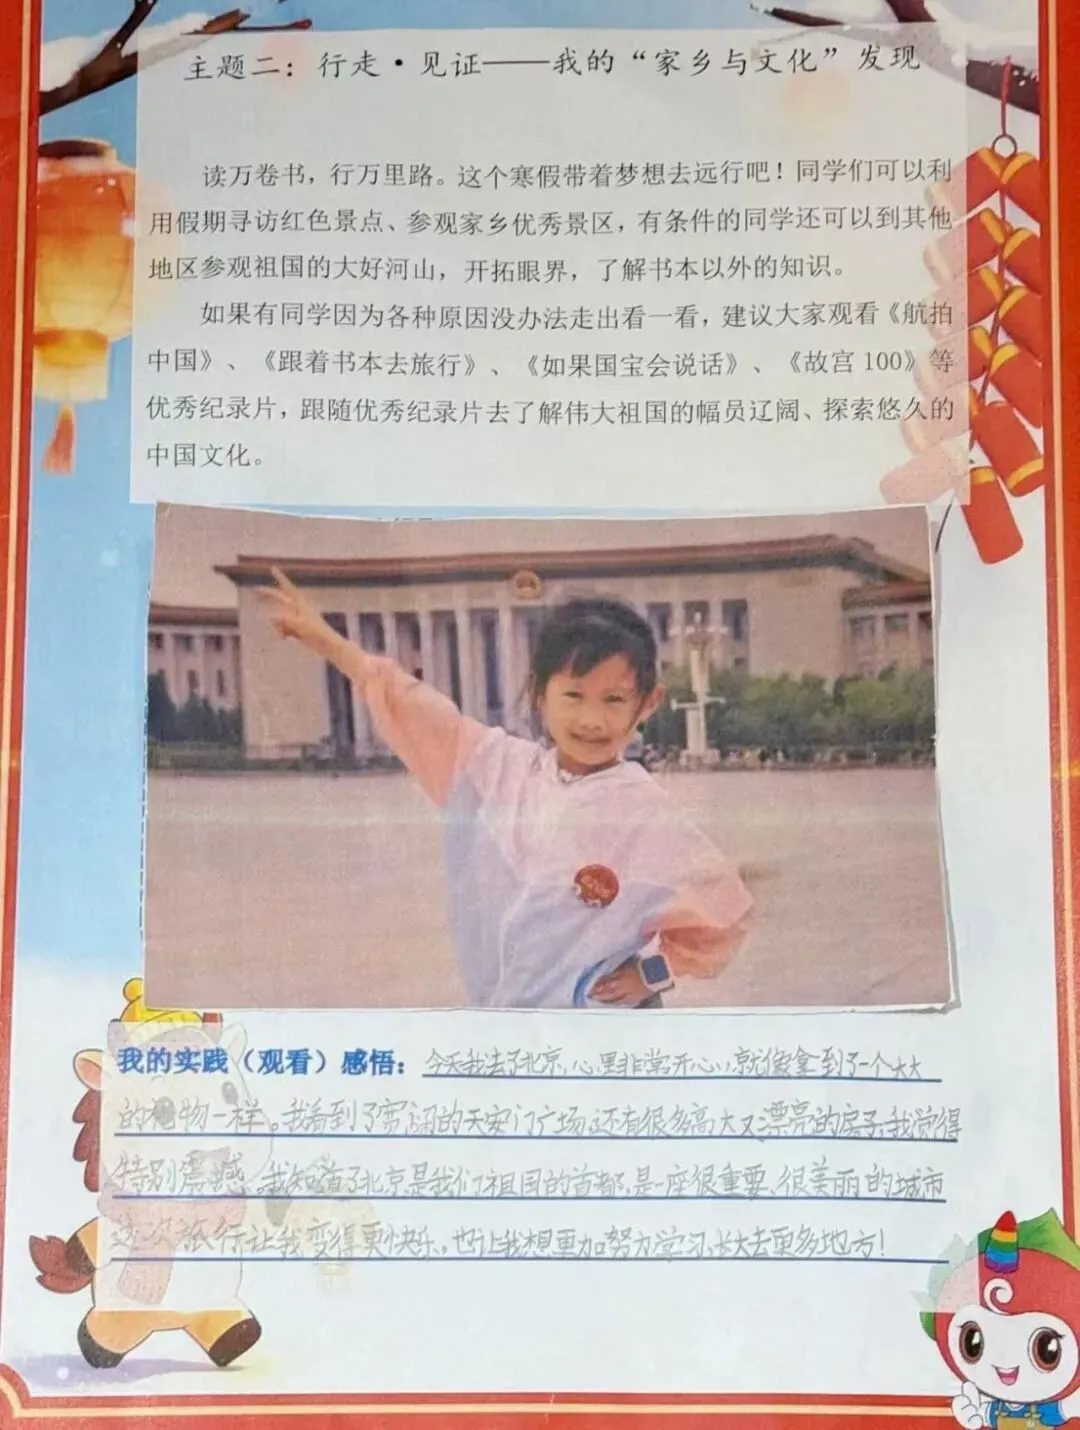 主题二：行走·见证——我的“家乡与文化”发现
读万卷书，行万里路。这个寒假带着梦想去远行吧！同学们可以利
用假期寻访红色景点、参观家乡优秀景区，有条件的同学还可以到其他
地区参观祖国的大好河山，开拓眼界，了解书本以外的知识。
如果有同学因为各种原因没办法走出看一看，建议大家观看《航拍
中国》、《跟着书本去旅行》、《如果国宝会说话》、《故宫 100》等
优秀纪录片，跟随优秀纪录片去了解伟大祖国的幅员辽阔、探索悠久的
中国文化。
我的实践（观看）感悟：今天我去了北京，心里非常开心，就像拿到了一个大大
的礼物一样。我看到了宽阔的天安门广场，还有很多高大又漂亮的房子，我觉得
特别震撼。我知道了北京是我们祖国的首都，是一座很重要、很美丽的城市
这次旅行让我变得更快乐，也让我想更加努力学习，长大去更多地方！